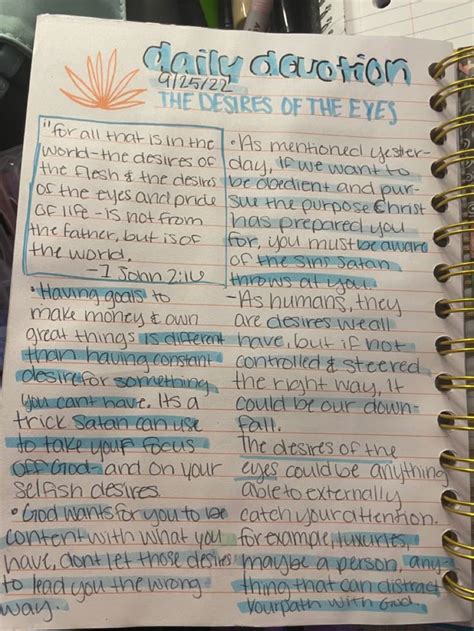 daily devotion
9/25/22
THE DESIRES OF THE EYES
"for all that is in the
world-the desires of
the flesh & the desires
of the eyes and pride
of life - is not from
the father, but is of
the world.
-1 John 2:16
•Having goals to
make money & own
great things is different
than having constant
desire for something
you cant have. Its a
trick Satan can use
to take your focus
off God- and on your
selfish desires.
•God wants for you to be
content with what you
have, dont let those desires
to lead you the wrong
way.
•As mentioned yester-
day, if we want to
be obedient and pur-
sue the purpose Christ
has prepared you
for, you must be aware
of the sin Satan
throws at you.
-As humans, they
are desires we all
have, but if not
controlled & steered
the right way, it
could be our down-
fall.
The desires of the
eyes could be anything
able to externally
catch your attention.
for example, luxuries,
maybe a person, any-
thing that can distract
your path with God.